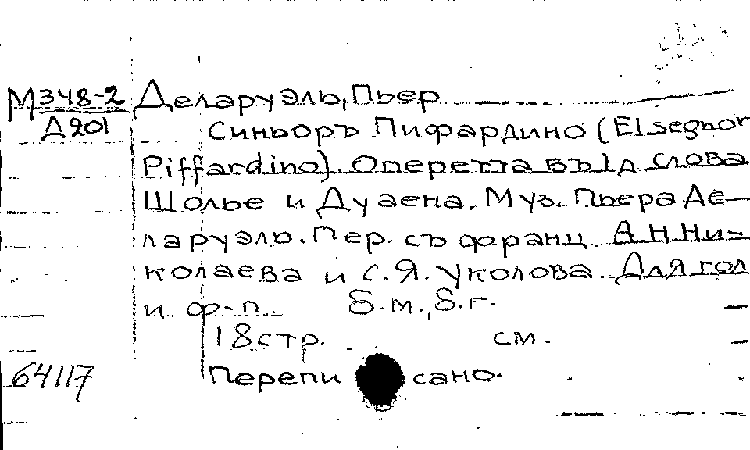 М348-2 Деларуэль, Пьер
Д201
Синьоръ Пифардино (El segnor
Piffardino). Оперетта въ 1 д. Слова
Шолье и Дуаена. Муз. Пьера Де-
ларуэль. Пер. съ франц. А.Н. Ни-
колаева и С.Я. Уколова. Для гол
и ф-п. Б.м., Б.г.
18 стр. см.
64117 Перепи сано.